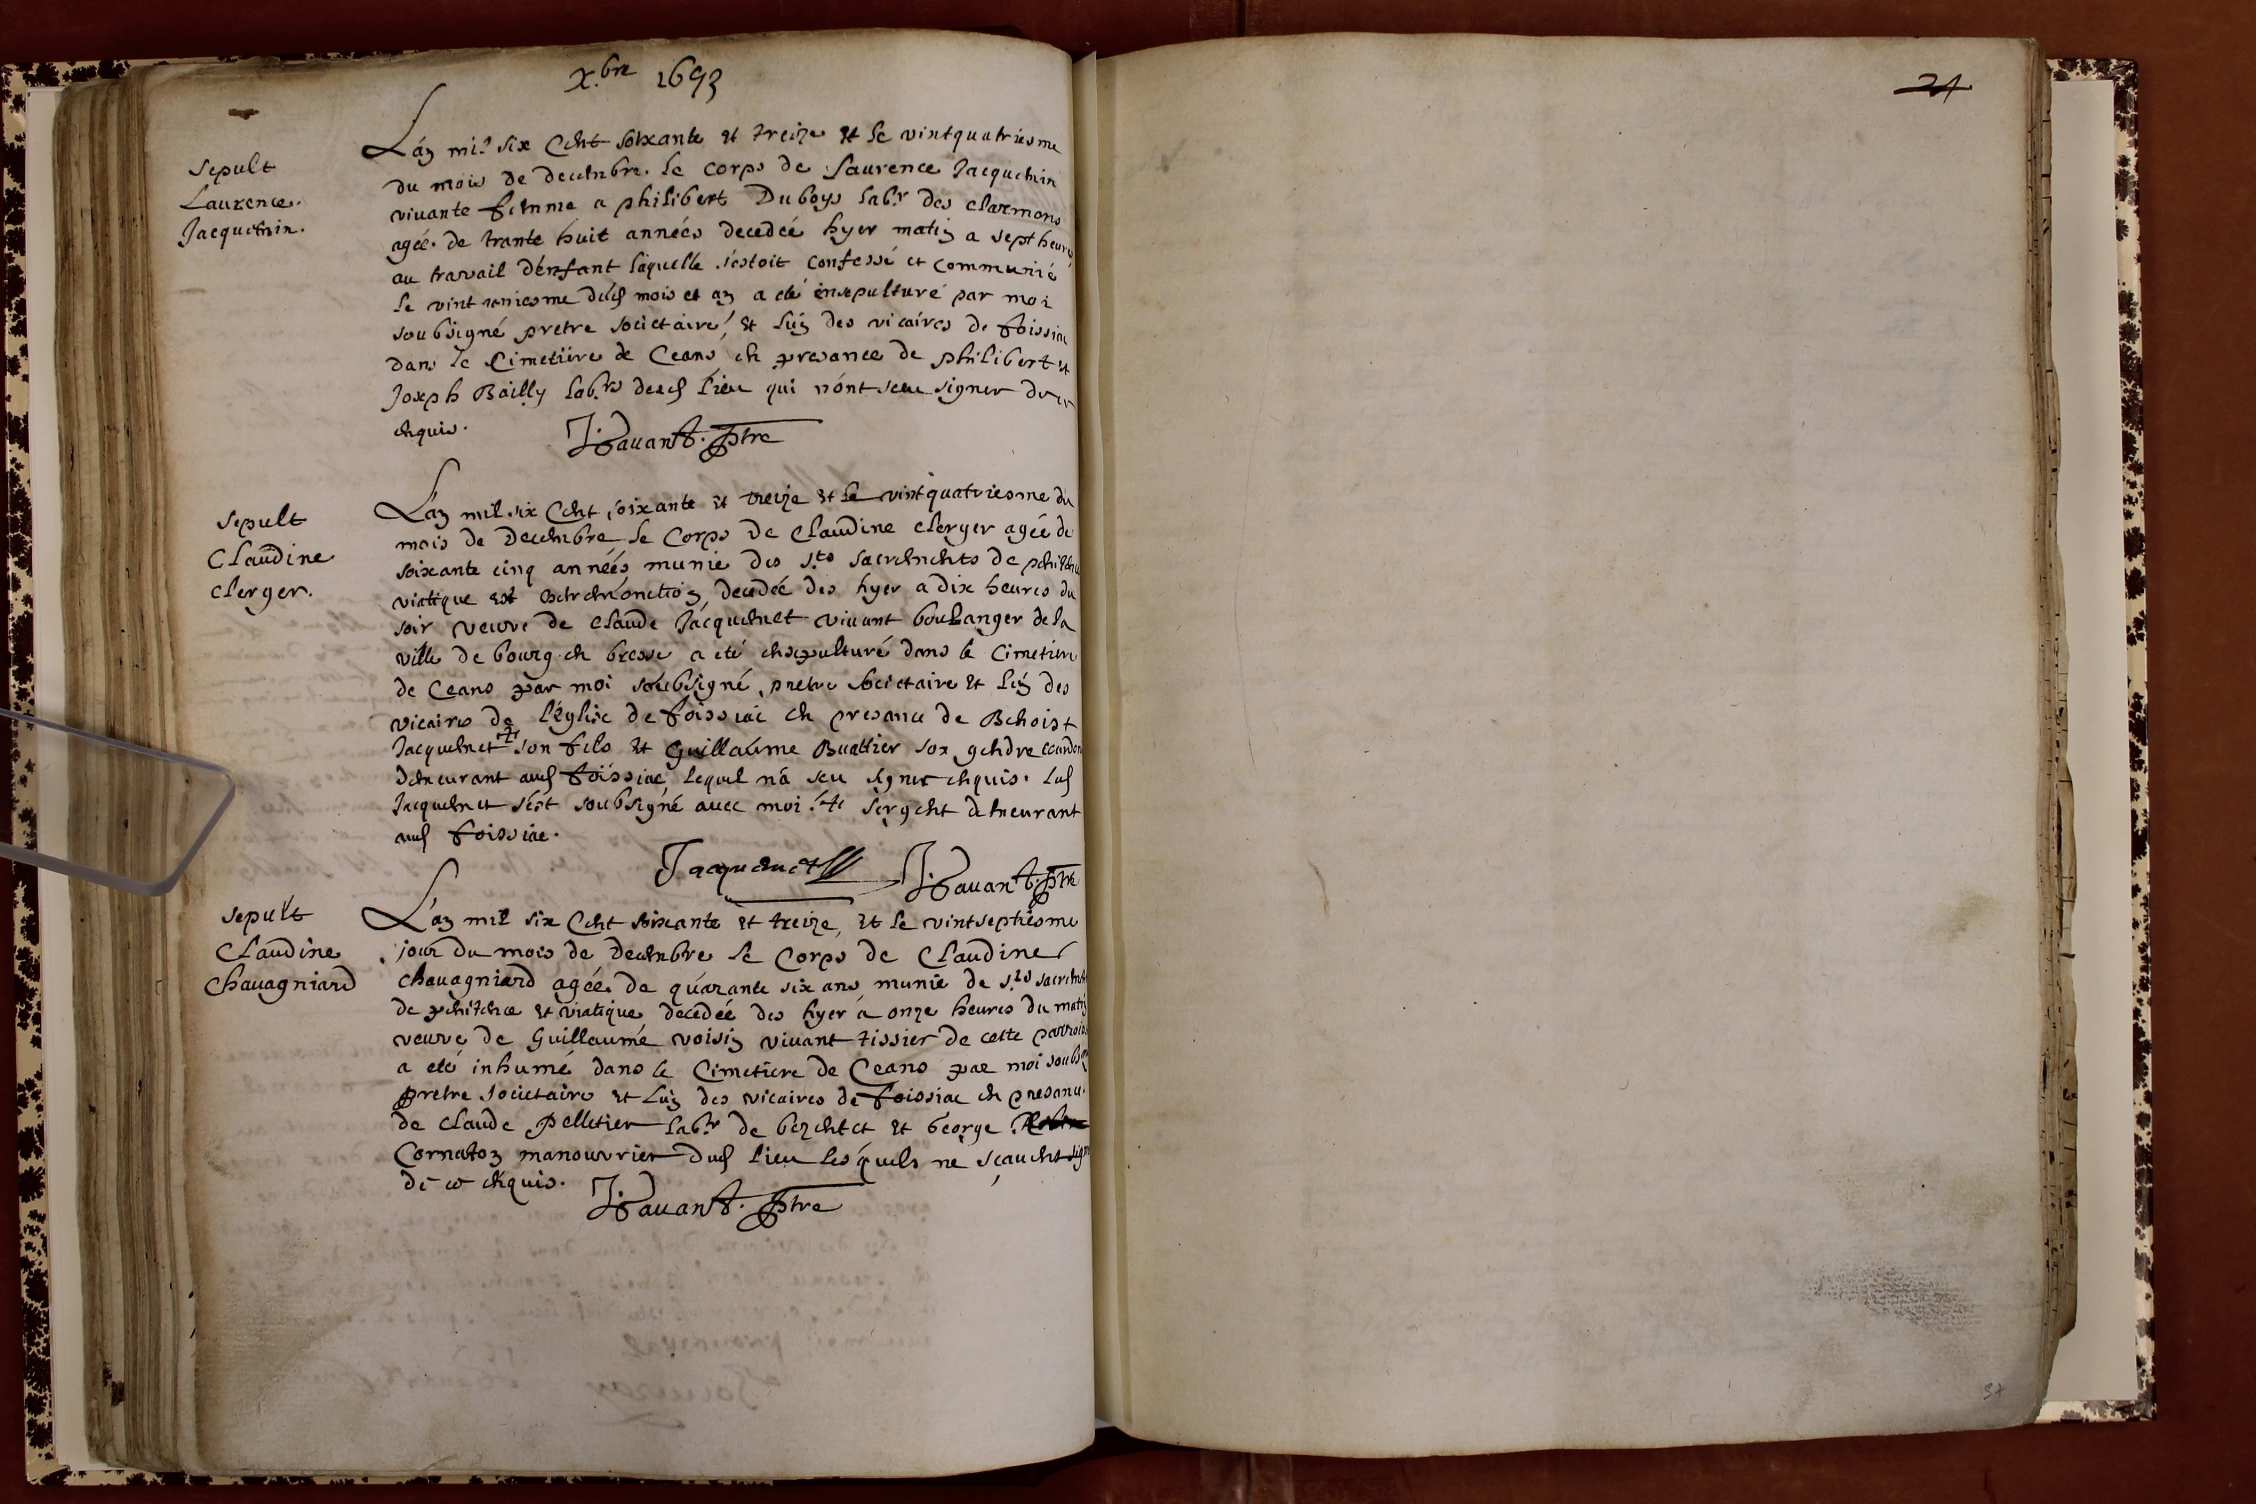 Xbre 1693
Sepult
Laurence
Jacquemin.
L'an mil six Cent soixante et treize et le vintquatriesme
du mois de decembre. le corps de Laurence Jacquemin
vivante femme a philibert Duboys labr des clarmons
agée de trante huit années decedée hyer matin a sept heures
au travail d'enfant laquelle s'estoit confessé et communié
le vint uniesme dud mois et an a eté ensepulturé par moi
soubsigné pretre societaire et l'un des vicaires de foissia
dans le Cimetiere de Ceans en presance de philibert et
Joseph Bailly labrs dud lieu qui n'ont sceu signer de ce
enquis. J. Favant. ptre
Sepult
Claudine
Clerger.
L'an mil six Cent soixante et treize et le vintquatriesme du
mois de decembre le Corps de Claudine Clerger agée de
soixante cinq années munie des sts sacrements de penitence
viatique et extremonction decedée des hyer a dix heures du
soir veuve de Claude Jacquemet vivant boulanger de la
ville de bourg en bresse a eté ensepulturé dans le Cimetiere
de Ceans par moi soubsigné, pretre societaire et l'un des
vicaires de l'église de foissiac en presance de Benoist
Jacquemet son fils et Guillaume Buattier son gendre
demeurant aud foissiac, lequel n'a sceu signer enquis. led
Jacquemet s'est soubsigné avec moi. sergent demeurant
aud foissiac.
Jacquemet J. Favant. ptre
Sepult
Claudine
Chavagniard
L'an mil six Cent soixante et treize, et le vintseptiesme
jour du mois de decembre le Corps de Claudine
chavagniard agée de quarante six ans munie de sts sacrements
de penitence et viatique decedée des hyer à onze heures du matin
veuve de Guillaume voisin vivant tissier de cette parroisse
a eté inhumé dans le Cimetiere de Ceans par moi soubsig
pretre societaire et l'un des vicaires de foissiac en presance
de Claude Pelletier labr de bezentet et George
Cornaton manouvrier dud lieu lesquels ne sçauent sign
de ce enquis. J. Favant. ptre
24
37